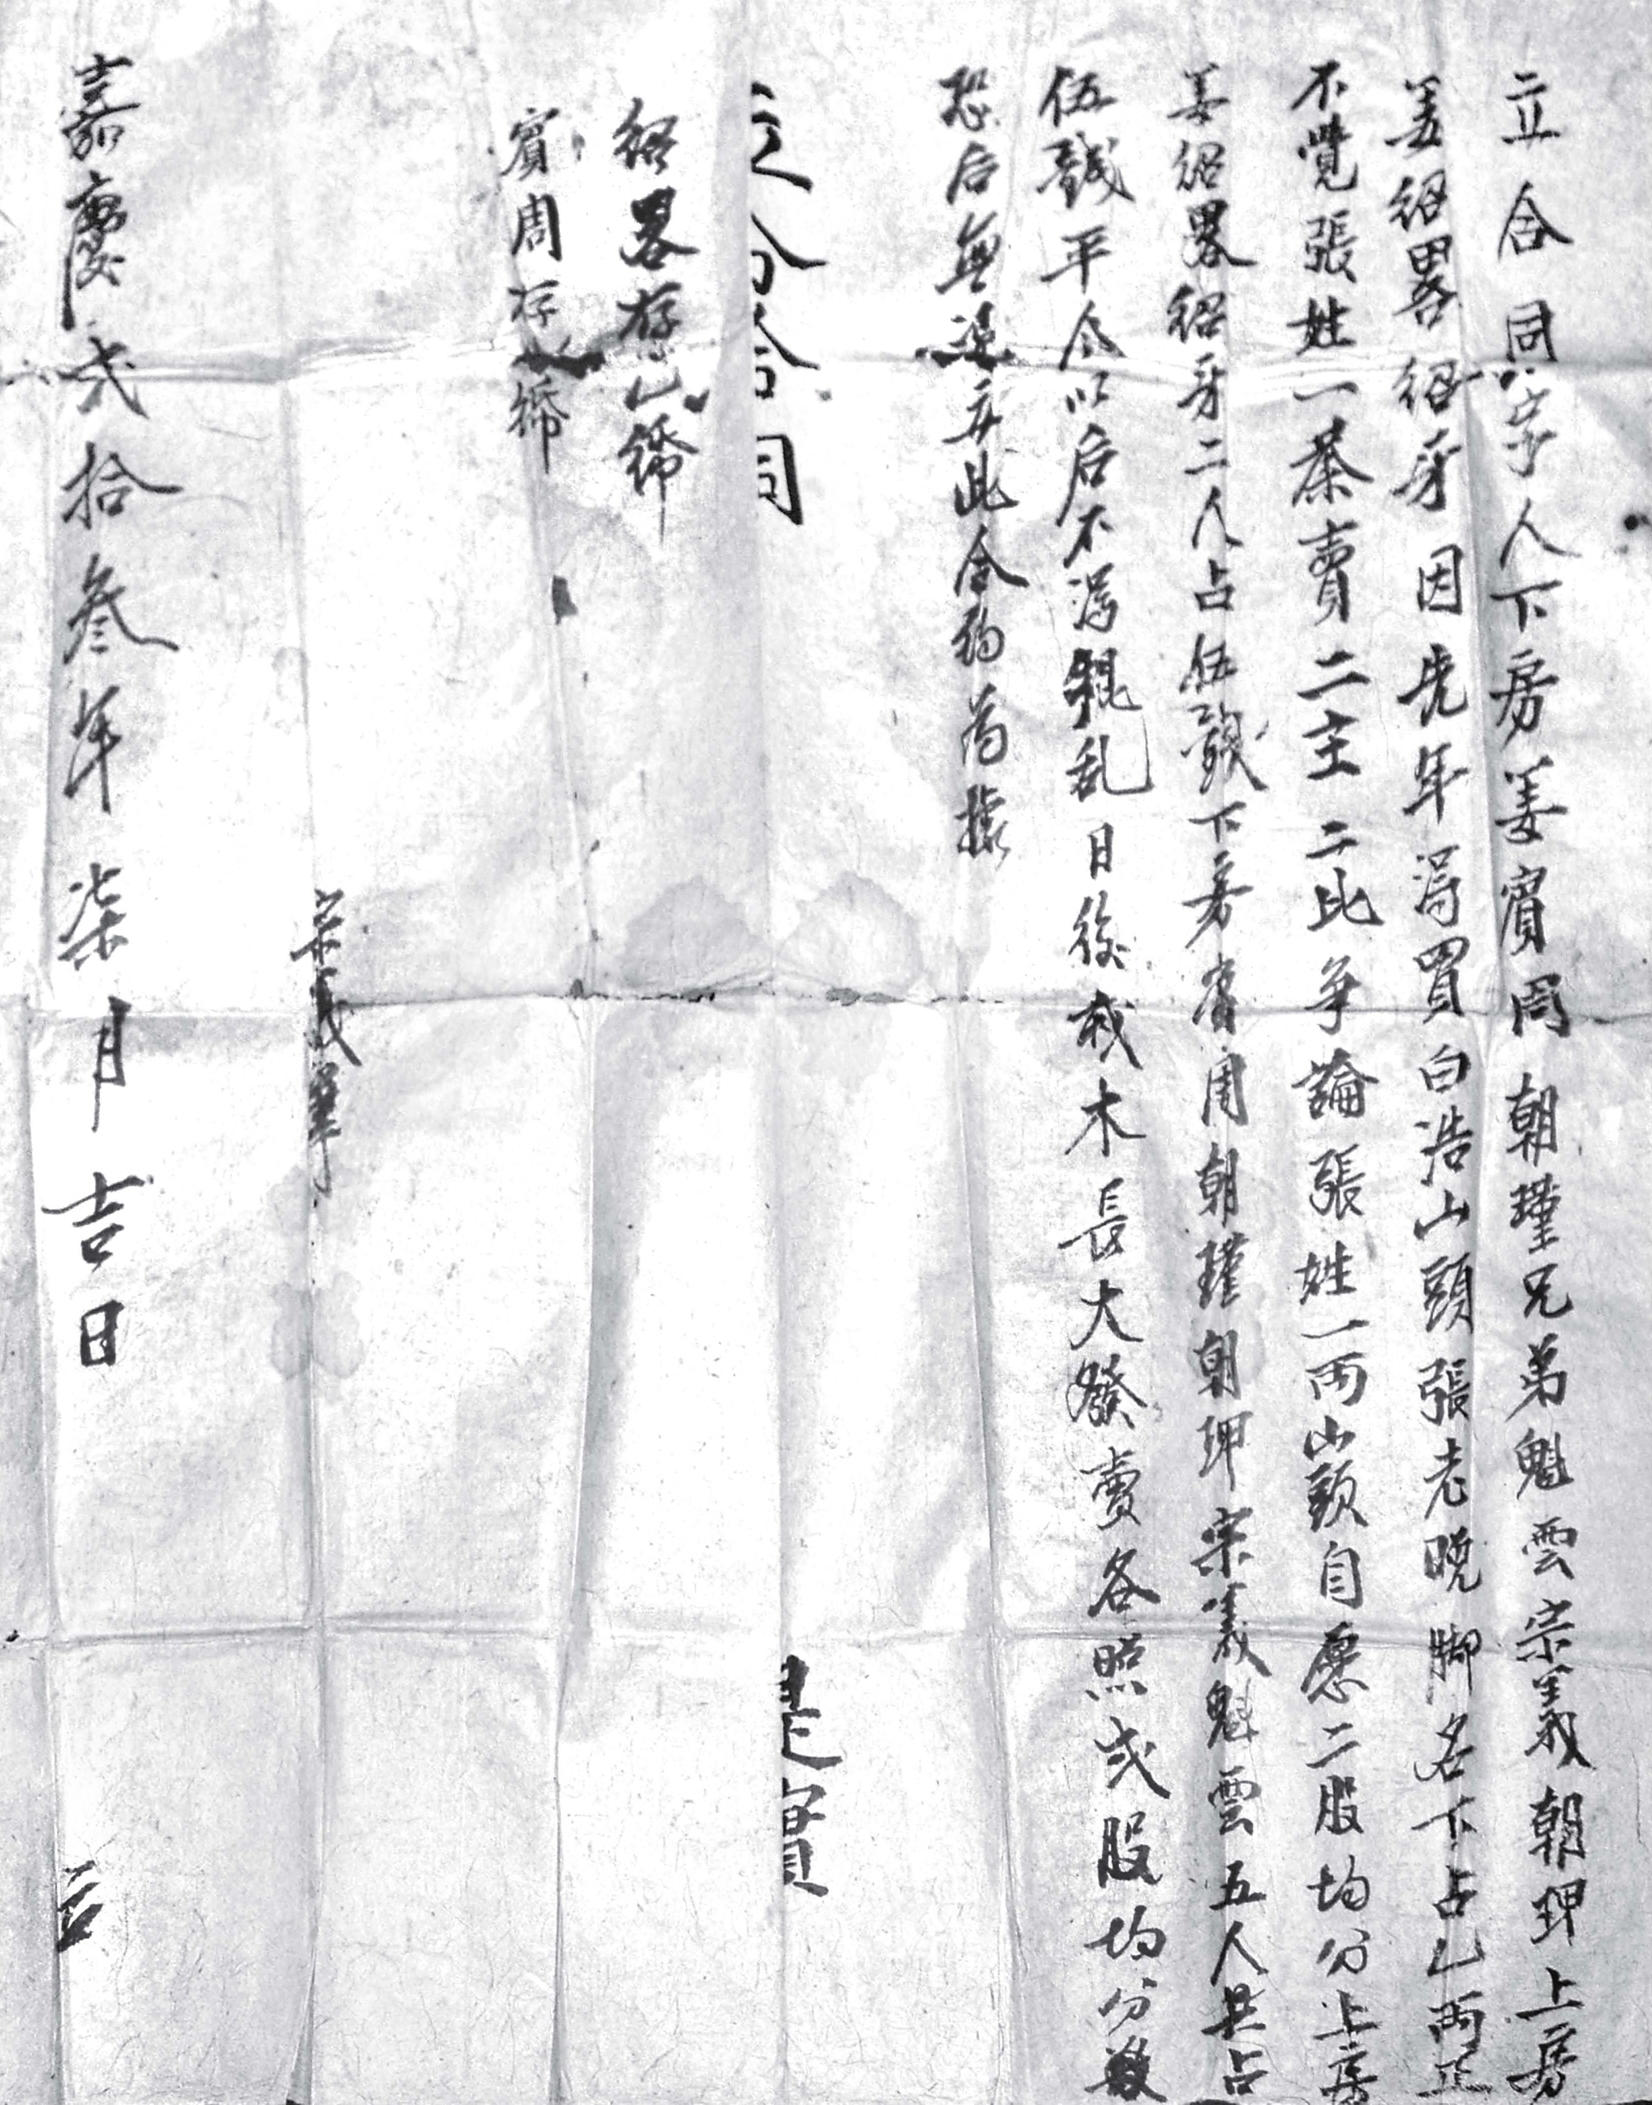 立合同字人下房姜賓周朝瑾兄弟魁雲宗義朝珅上房
姜紹畧紹牙因先年淂買白浩山頭張老晚脚名下占乚両正
不覺張姓一茶賣二主二比争論張姓一両山頭自愿二股均分上房
姜紹畧紹牙二人占伍錢下房賓周朝瑾朝珅宗義魁雲五人共占
伍錢平仝以后不淂混乱日後栽木長大發賣各照弍股均分
恐后無憑立此合約為據
立分合同
是實
紹畧存乚紙
賓周存乚紙
宗義筆
嘉慶弍拾叁年柒月吉日
立